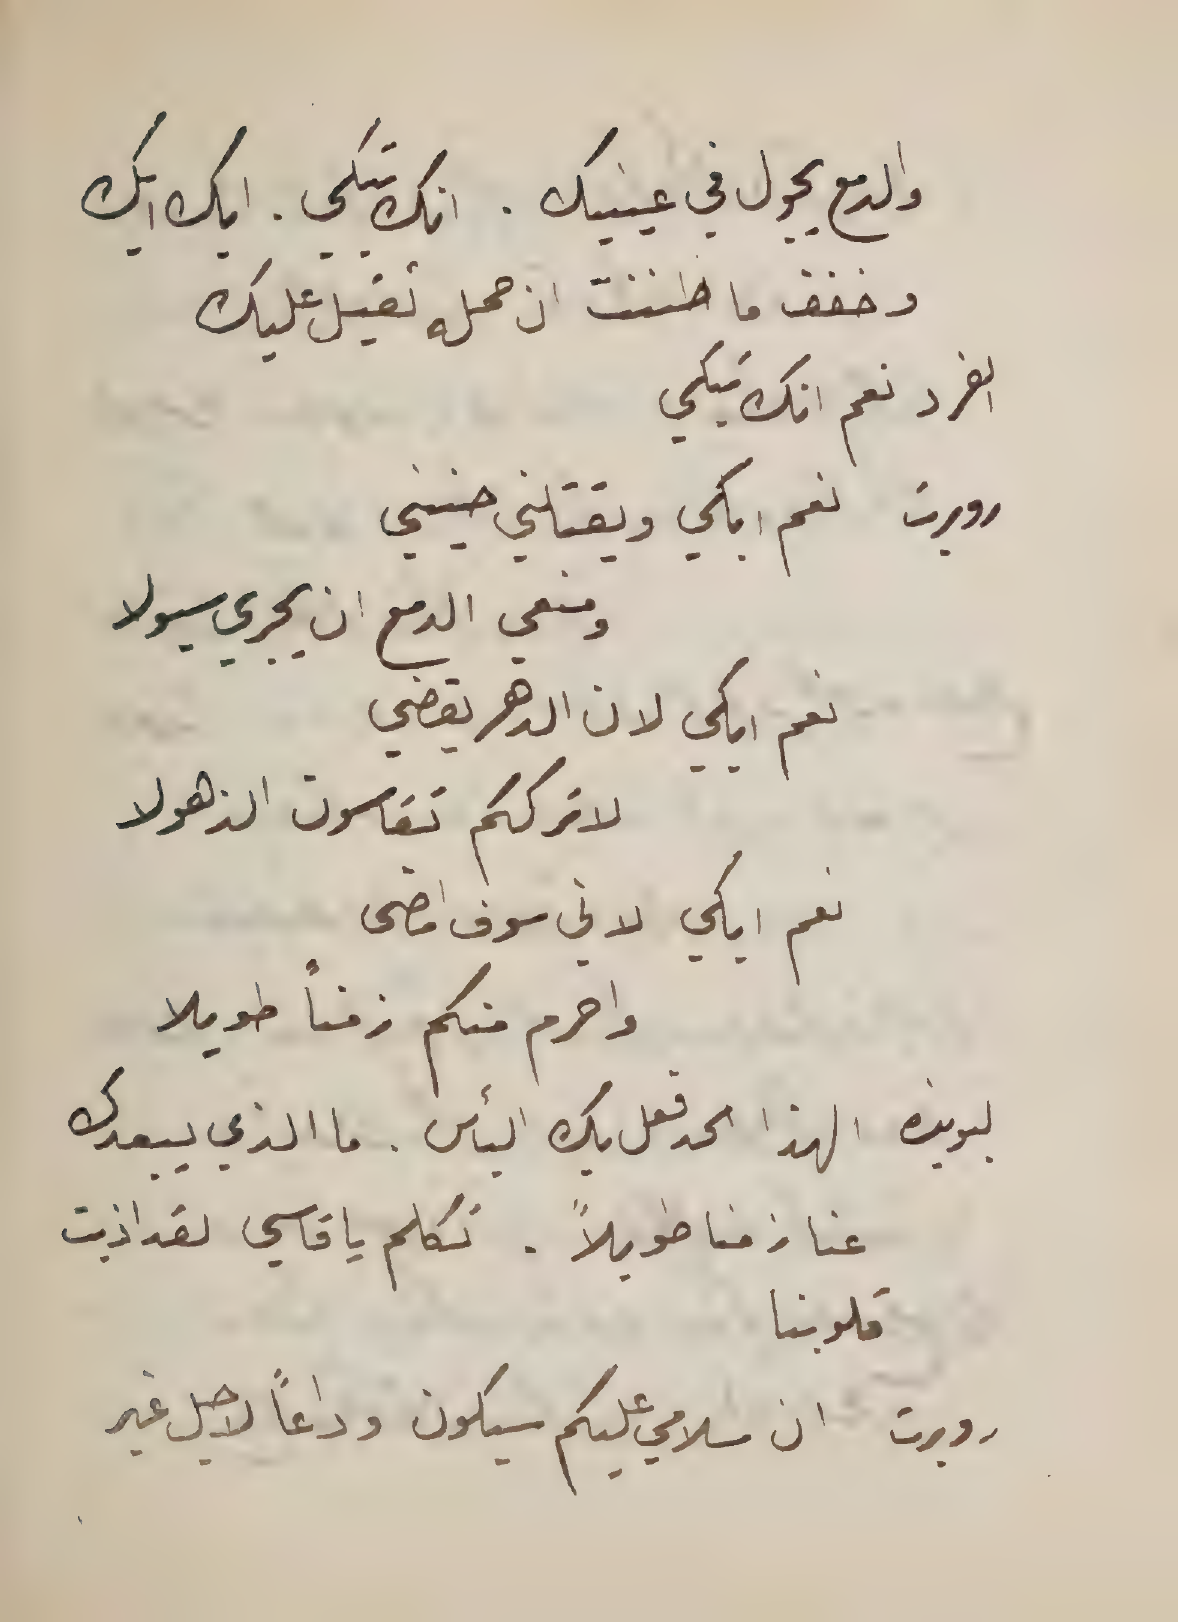 والدمع يجول في عينيك . انك تبكي . ابك ابك
وخفف ما ظننت ان حمله ثقيل عليك
الفرد نعم انك تبكي
روبرت نعم ابكي ويقتلني حنيني
ومنعي الدمع ان يجري سيولا
نعم ابكي لان الدهر يقضي
لاترككم تقاسون الذهولا
نعم ابكي لاني سوف امضى
واحرم منكم زمناً طويلا
الهذا الحد فعل بك اليأس . ما الذي يبعدك
عنا زمنا طويلاً . تكلم يا قاسي لقد اذبت
قلوبنا
روبرت ان سلامي عليكم سيكون وداعاً لاجل غير